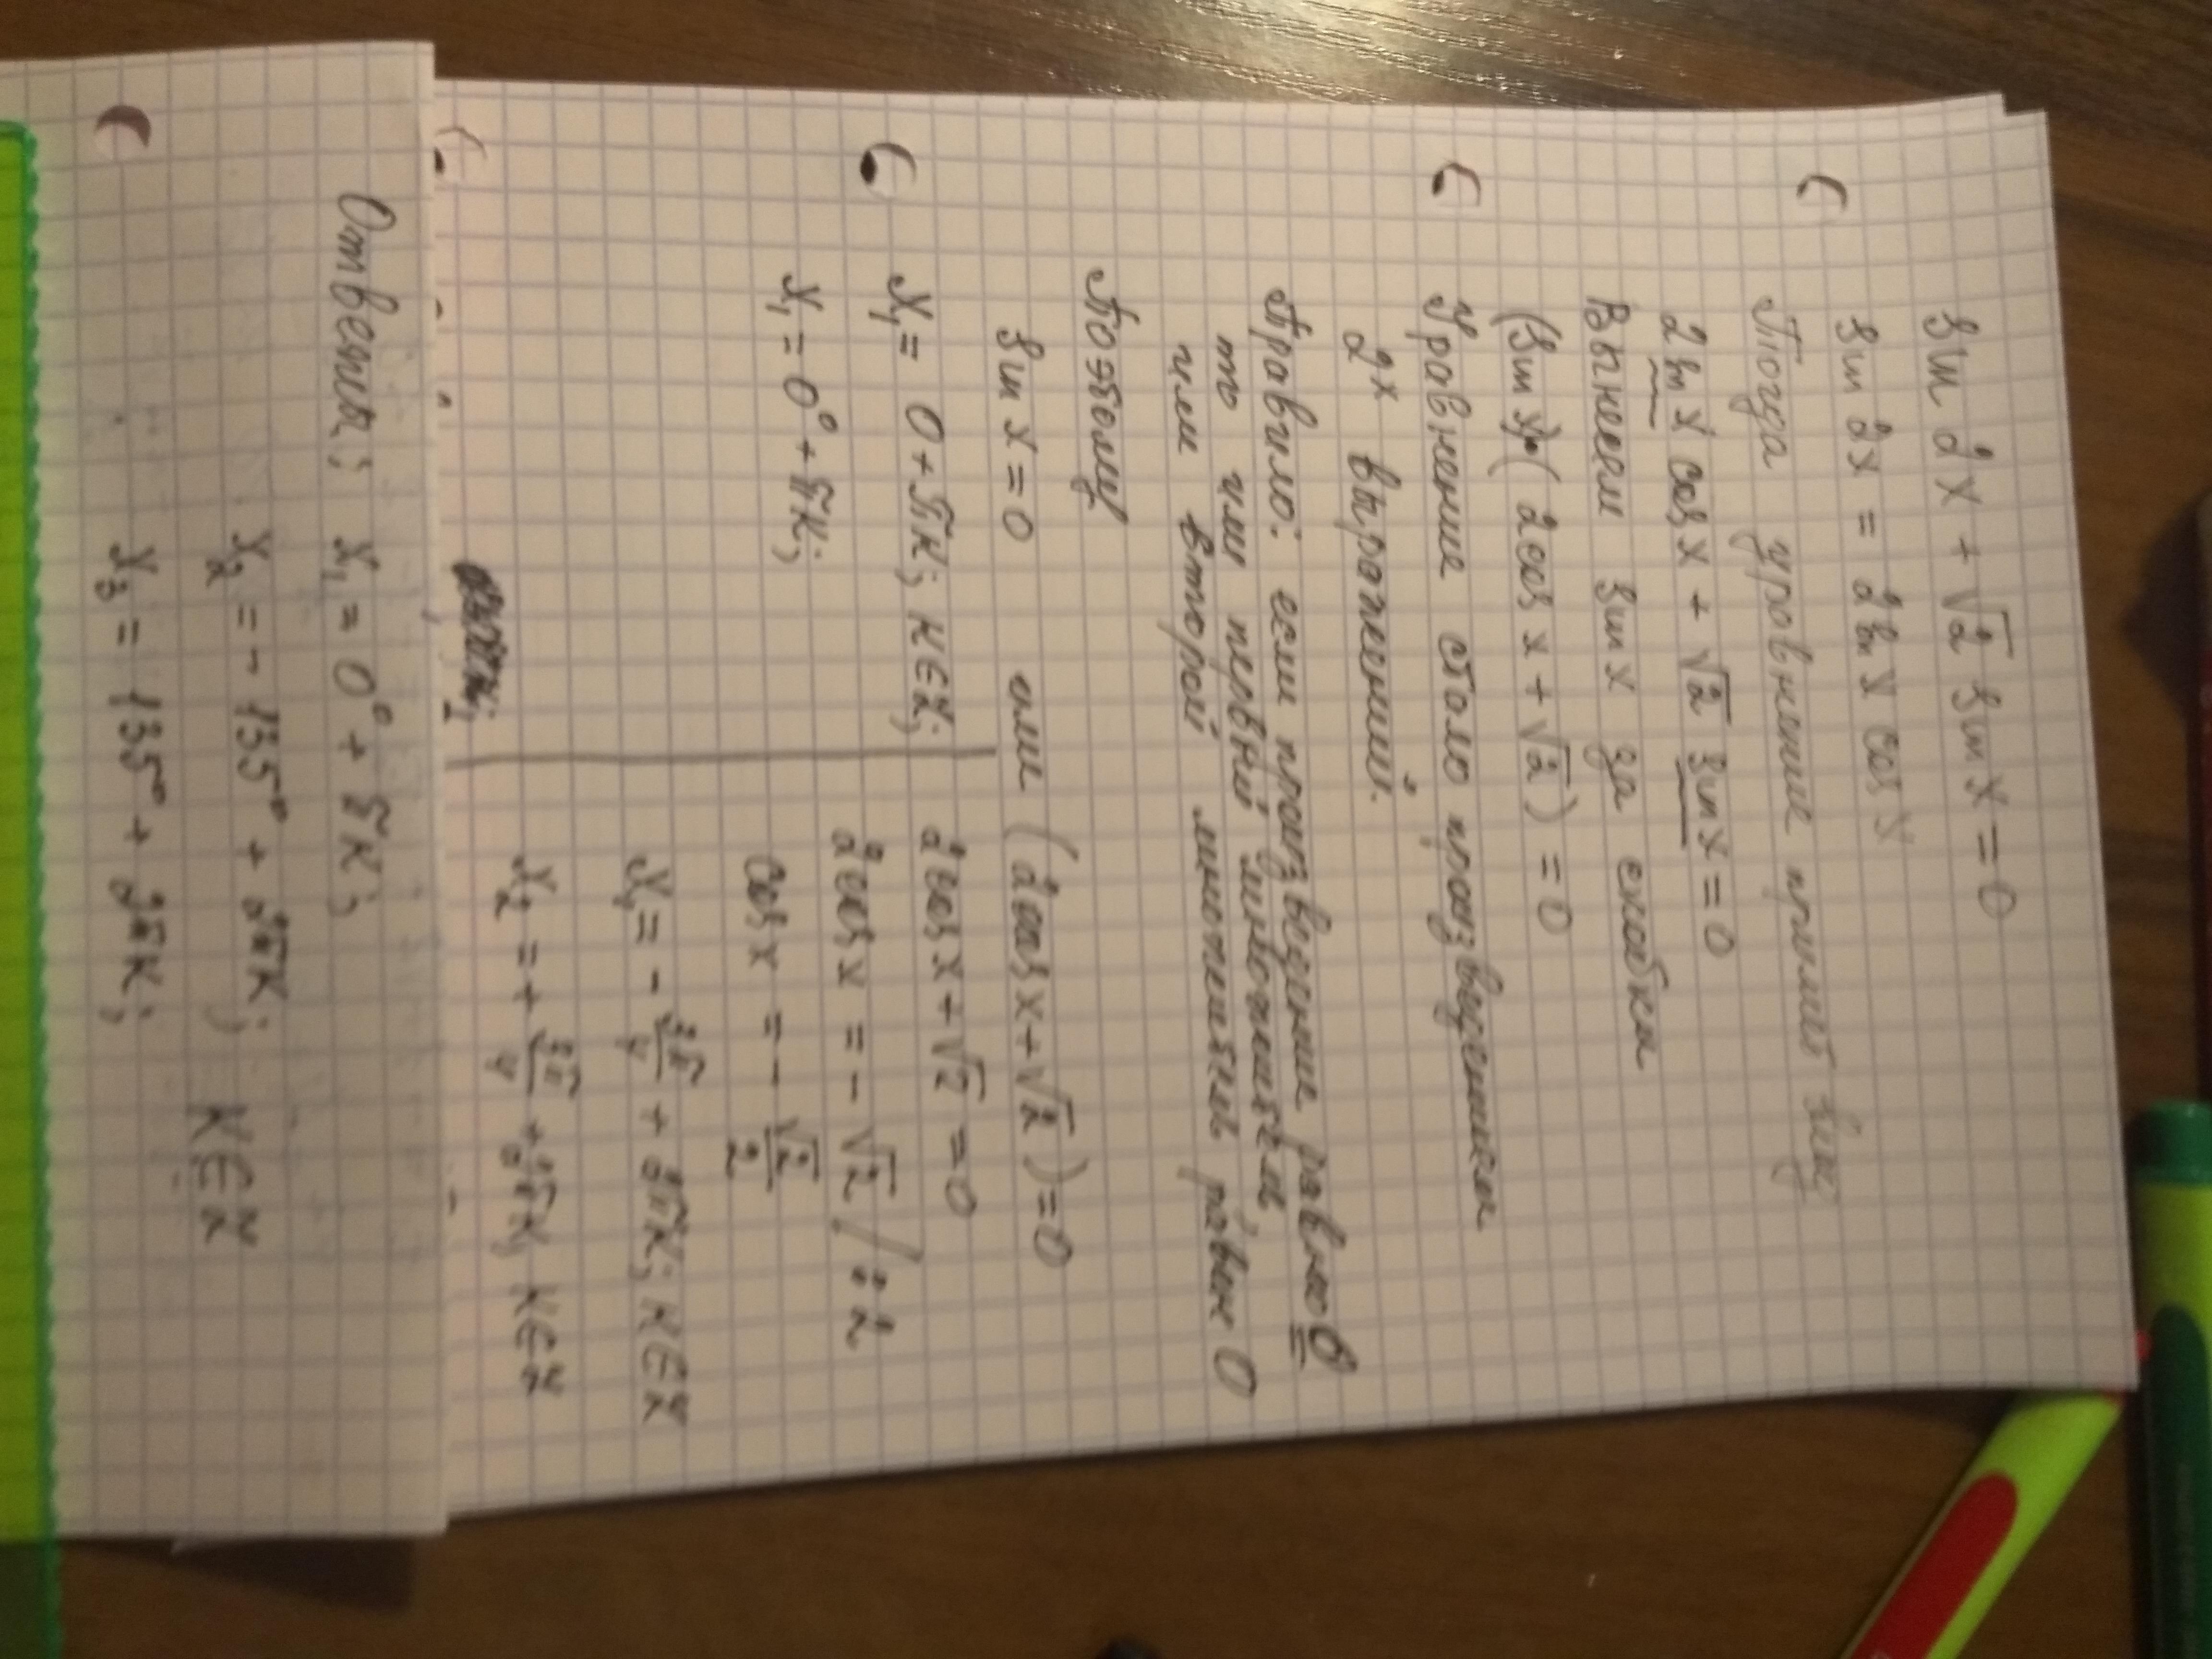 sin 2x + √2 sin x = 0
sin 2x = 2 sin x cos x
Тогда уравнение примет вид
2 sin x cos x + √2 sin x = 0
Вынесем sin x за скобки
(sin x)·(2 cos x + √2) = 0
Уравнение стало произведением
2х выражений.
Правило: если произведение равно 0
то или первый множитель,
или второй множитель равен 0
Поэтому
sin x = 0 или (2 cos x + √2) = 0
x₁ = 0 + πк; к ∈ Z;
x₁ = 0° + πк;
2 cos x + √2 = 0
2 cos x = - √2 / : 2
cos x = - √2/2
x₁ = - 3π/4 + 2πк; к ∈ Z
x₂ = + 3π/4 + 2πк, к ∈ Z
Ответы: x₁ = 0° + πк;
x₂ = - 135° + 2πк; к ∈ Z
x₃ = 135° + 2πк;